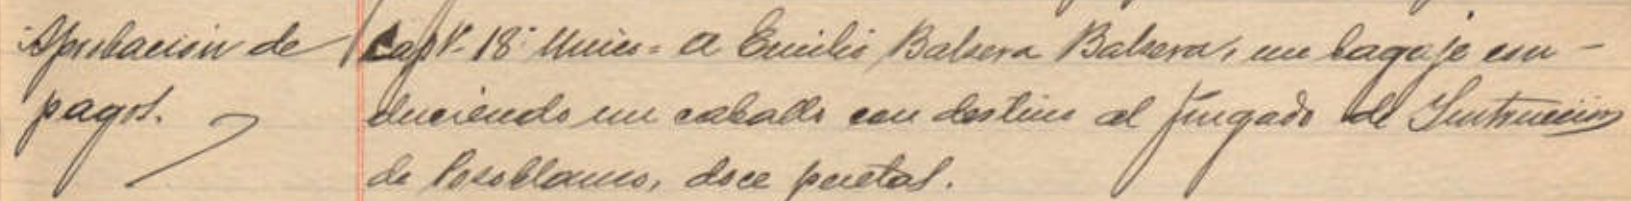 Aprobación de
pagos.
Capº 18º Unico = A Emilio Balsera Balsera, un bagaje con-
duciendo un caballo con destino al Juzgado de Instrucción
de Posoblanco, doce pesetas.